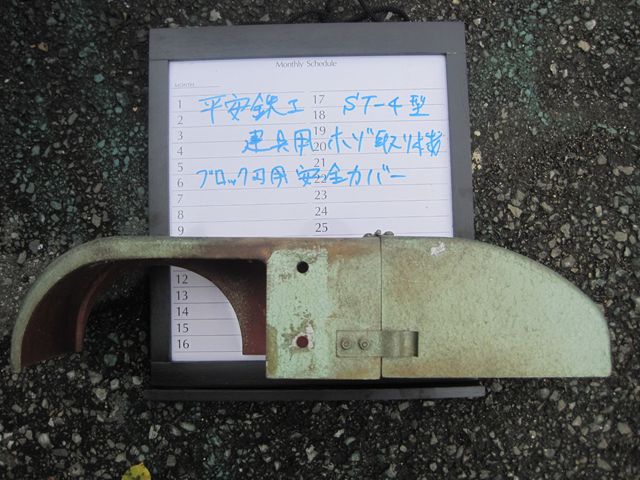 Monthly Schedule
MONTH
平安鉄工 ST-4型
建具用ホゾ取リ機
ブロック刃用安全カバー
1
2
3
4
5
6
7
8
9
12
13
14
15
16
17
18
19
20
21
22
23
24
25